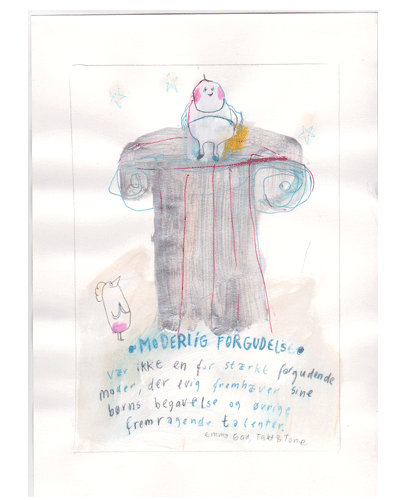 MODERLIG FORGUDELSE
Vær ikke en for stærkt forgudende
moder, der evig fremhæver sine
børns begavelse og øvrige
fremragende talenter.
Emma Gad, Takt & Tone